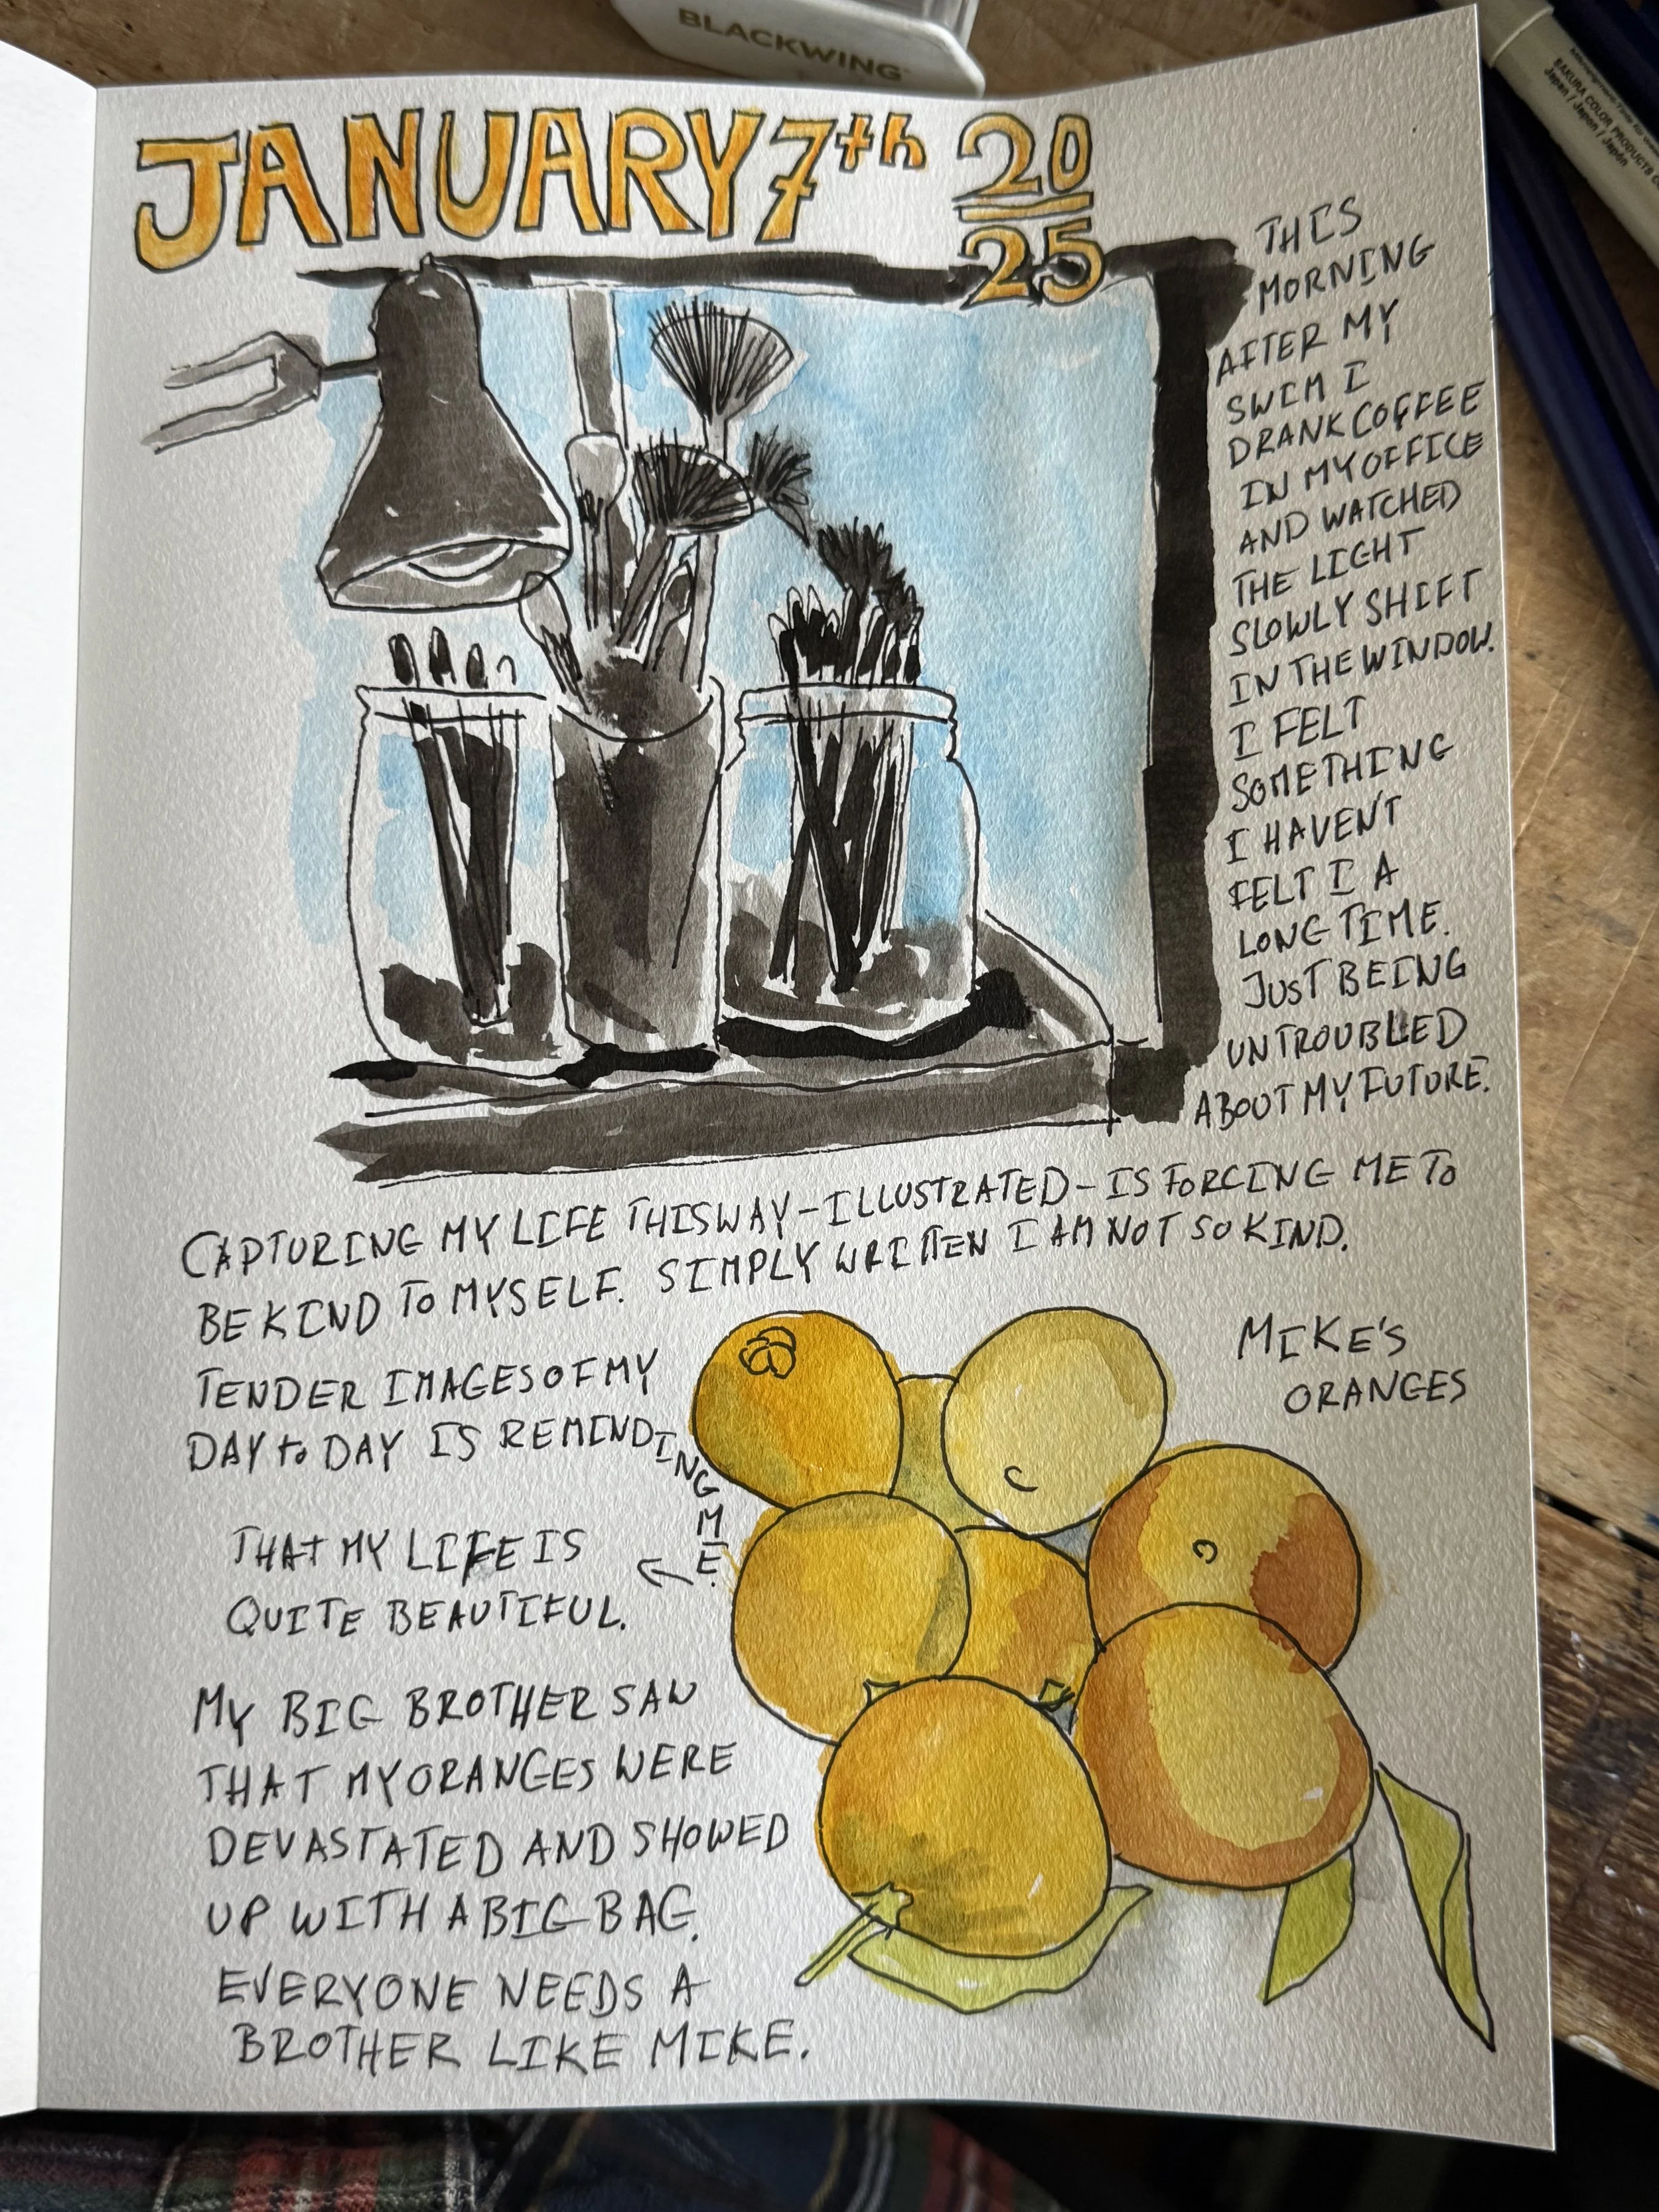 BLACKWING
SAKURA COLOR PRODUCTS
Japan / Japon / Japón
JANUARY 7th 20
25
THIS
MORNING
AFTER MY
SWIM I
DRANK COFFEE
IN MY OFFICE
AND WATCHED
THE LIGHT
SLOWLY SHIFT
IN THE WINDOW.
I FELT
SOMETHING
I HAVEN'T
FELT I A
LONG TIME.
JUST BEING
UNTROUBLED
ABOUT MY FUTURE.
CAPTURING MY LIFE THIS WAY - ILLUSTRATED - IS FORCING ME TO
BE KIND TO MYSELF. SIMPLY WRITTEN I AM NOT SO KIND.
TENDER IMAGES OF MY
DAY to DAY IS REMINDING ME.
← THAT MY LIFE IS
QUITE BEAUTIFUL.
MIKE'S
ORANGES
MY BIG BROTHER SAW
THAT MY ORANGES WERE
DEVASTATED AND SHOWED
UP WITH A BIG BAG.
EVERYONE NEEDS A
BROTHER LIKE MIKE.